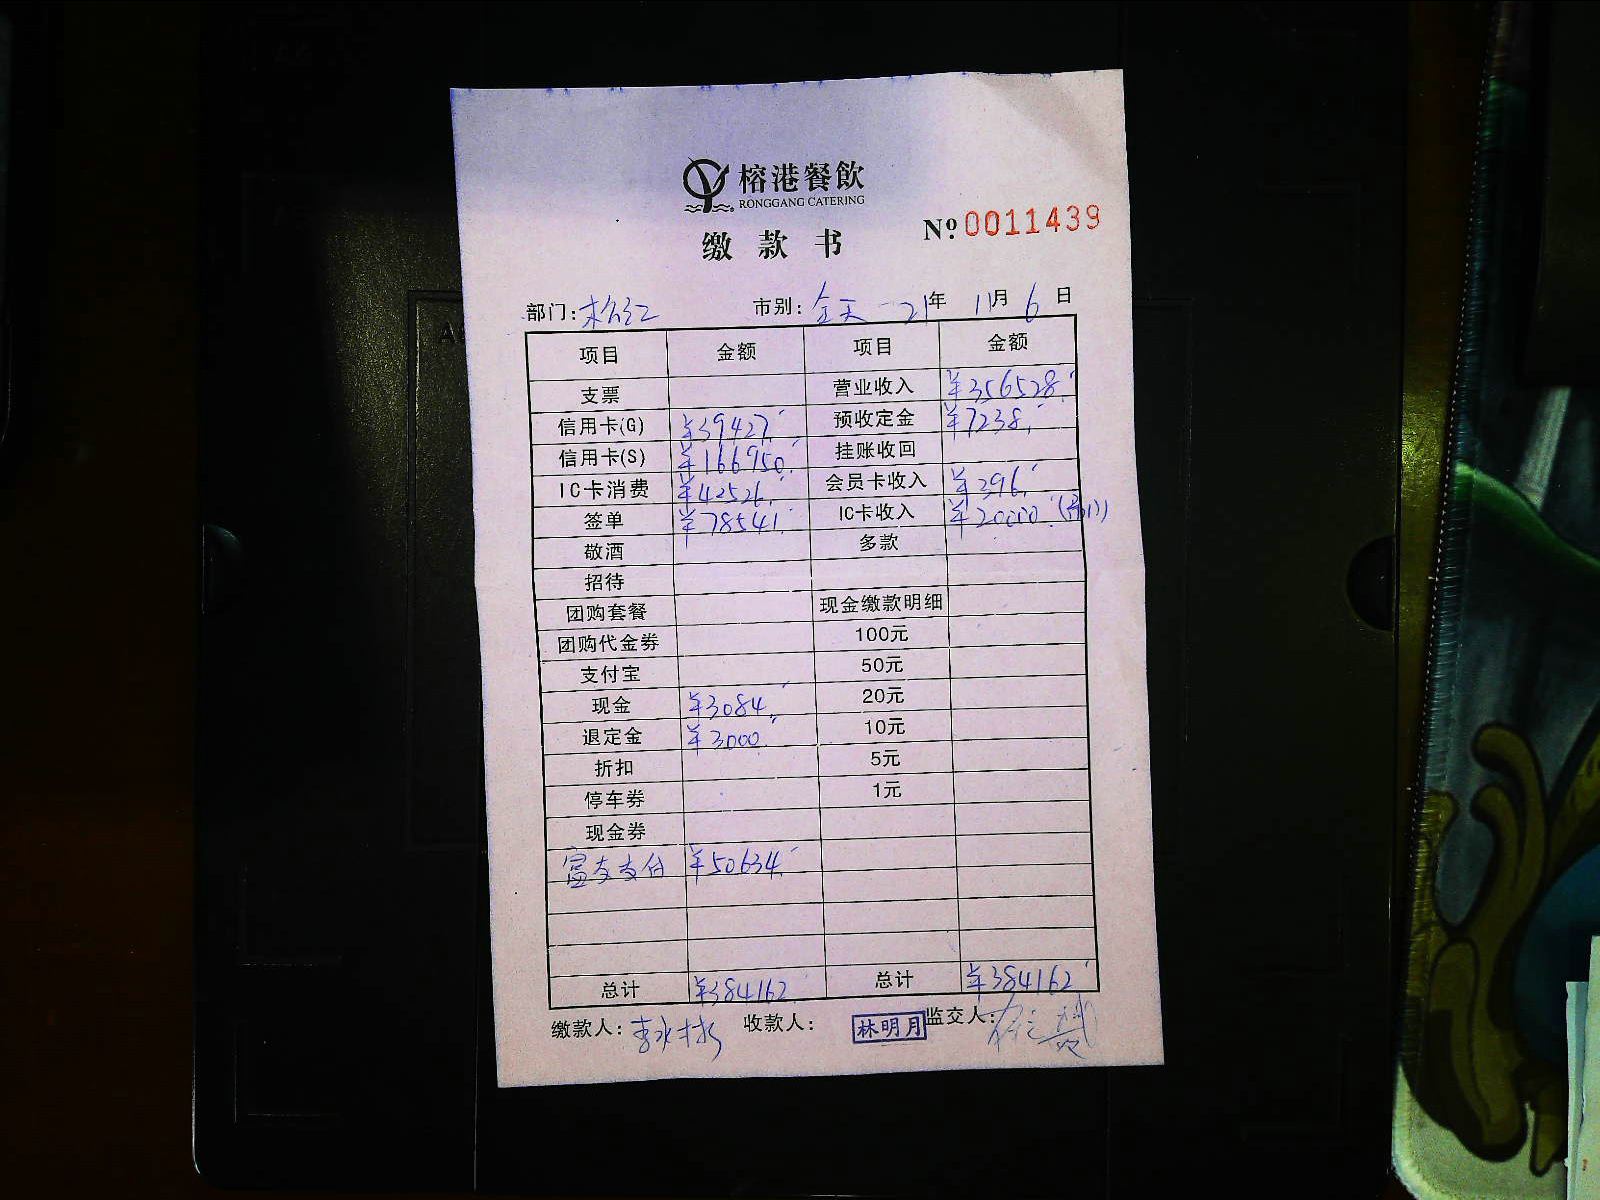 榕港餐飲
RONGGANG CATERING
缴款书 Nº 0011439
部门: 松江 市别: 全天 21年 11月 6日
项目 金额 项目 金额
支票 营业收入 ¥356528.
信用卡(G) ¥39427. 预收定金 ¥7238.
信用卡(S) ¥166950. 挂账收回
IC卡消费 ¥42526. 会员卡收入 ¥396.
签单 ¥78541. IC卡收入 ¥20000.
敬酒 多款
招待
团购套餐 现金缴款明细
团购代金券 100元
支付宝 50元
现金 ¥3084. 20元
退定金 ¥3000. 10元
折扣 5元
停车券 1元
现金券
富友支付 ¥50634.
总计 ¥384162 总计 ¥384162
缴款人: 收款人: 林明月 监交人: